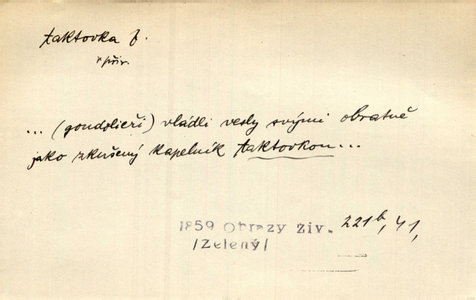 taktovka f.
v přir.
... (gondolieři) vládli vesly svými obratně
jako zkušený kapelník taktovkou...
1859 Obrazy živ. 221b, 41,
/Zelený/